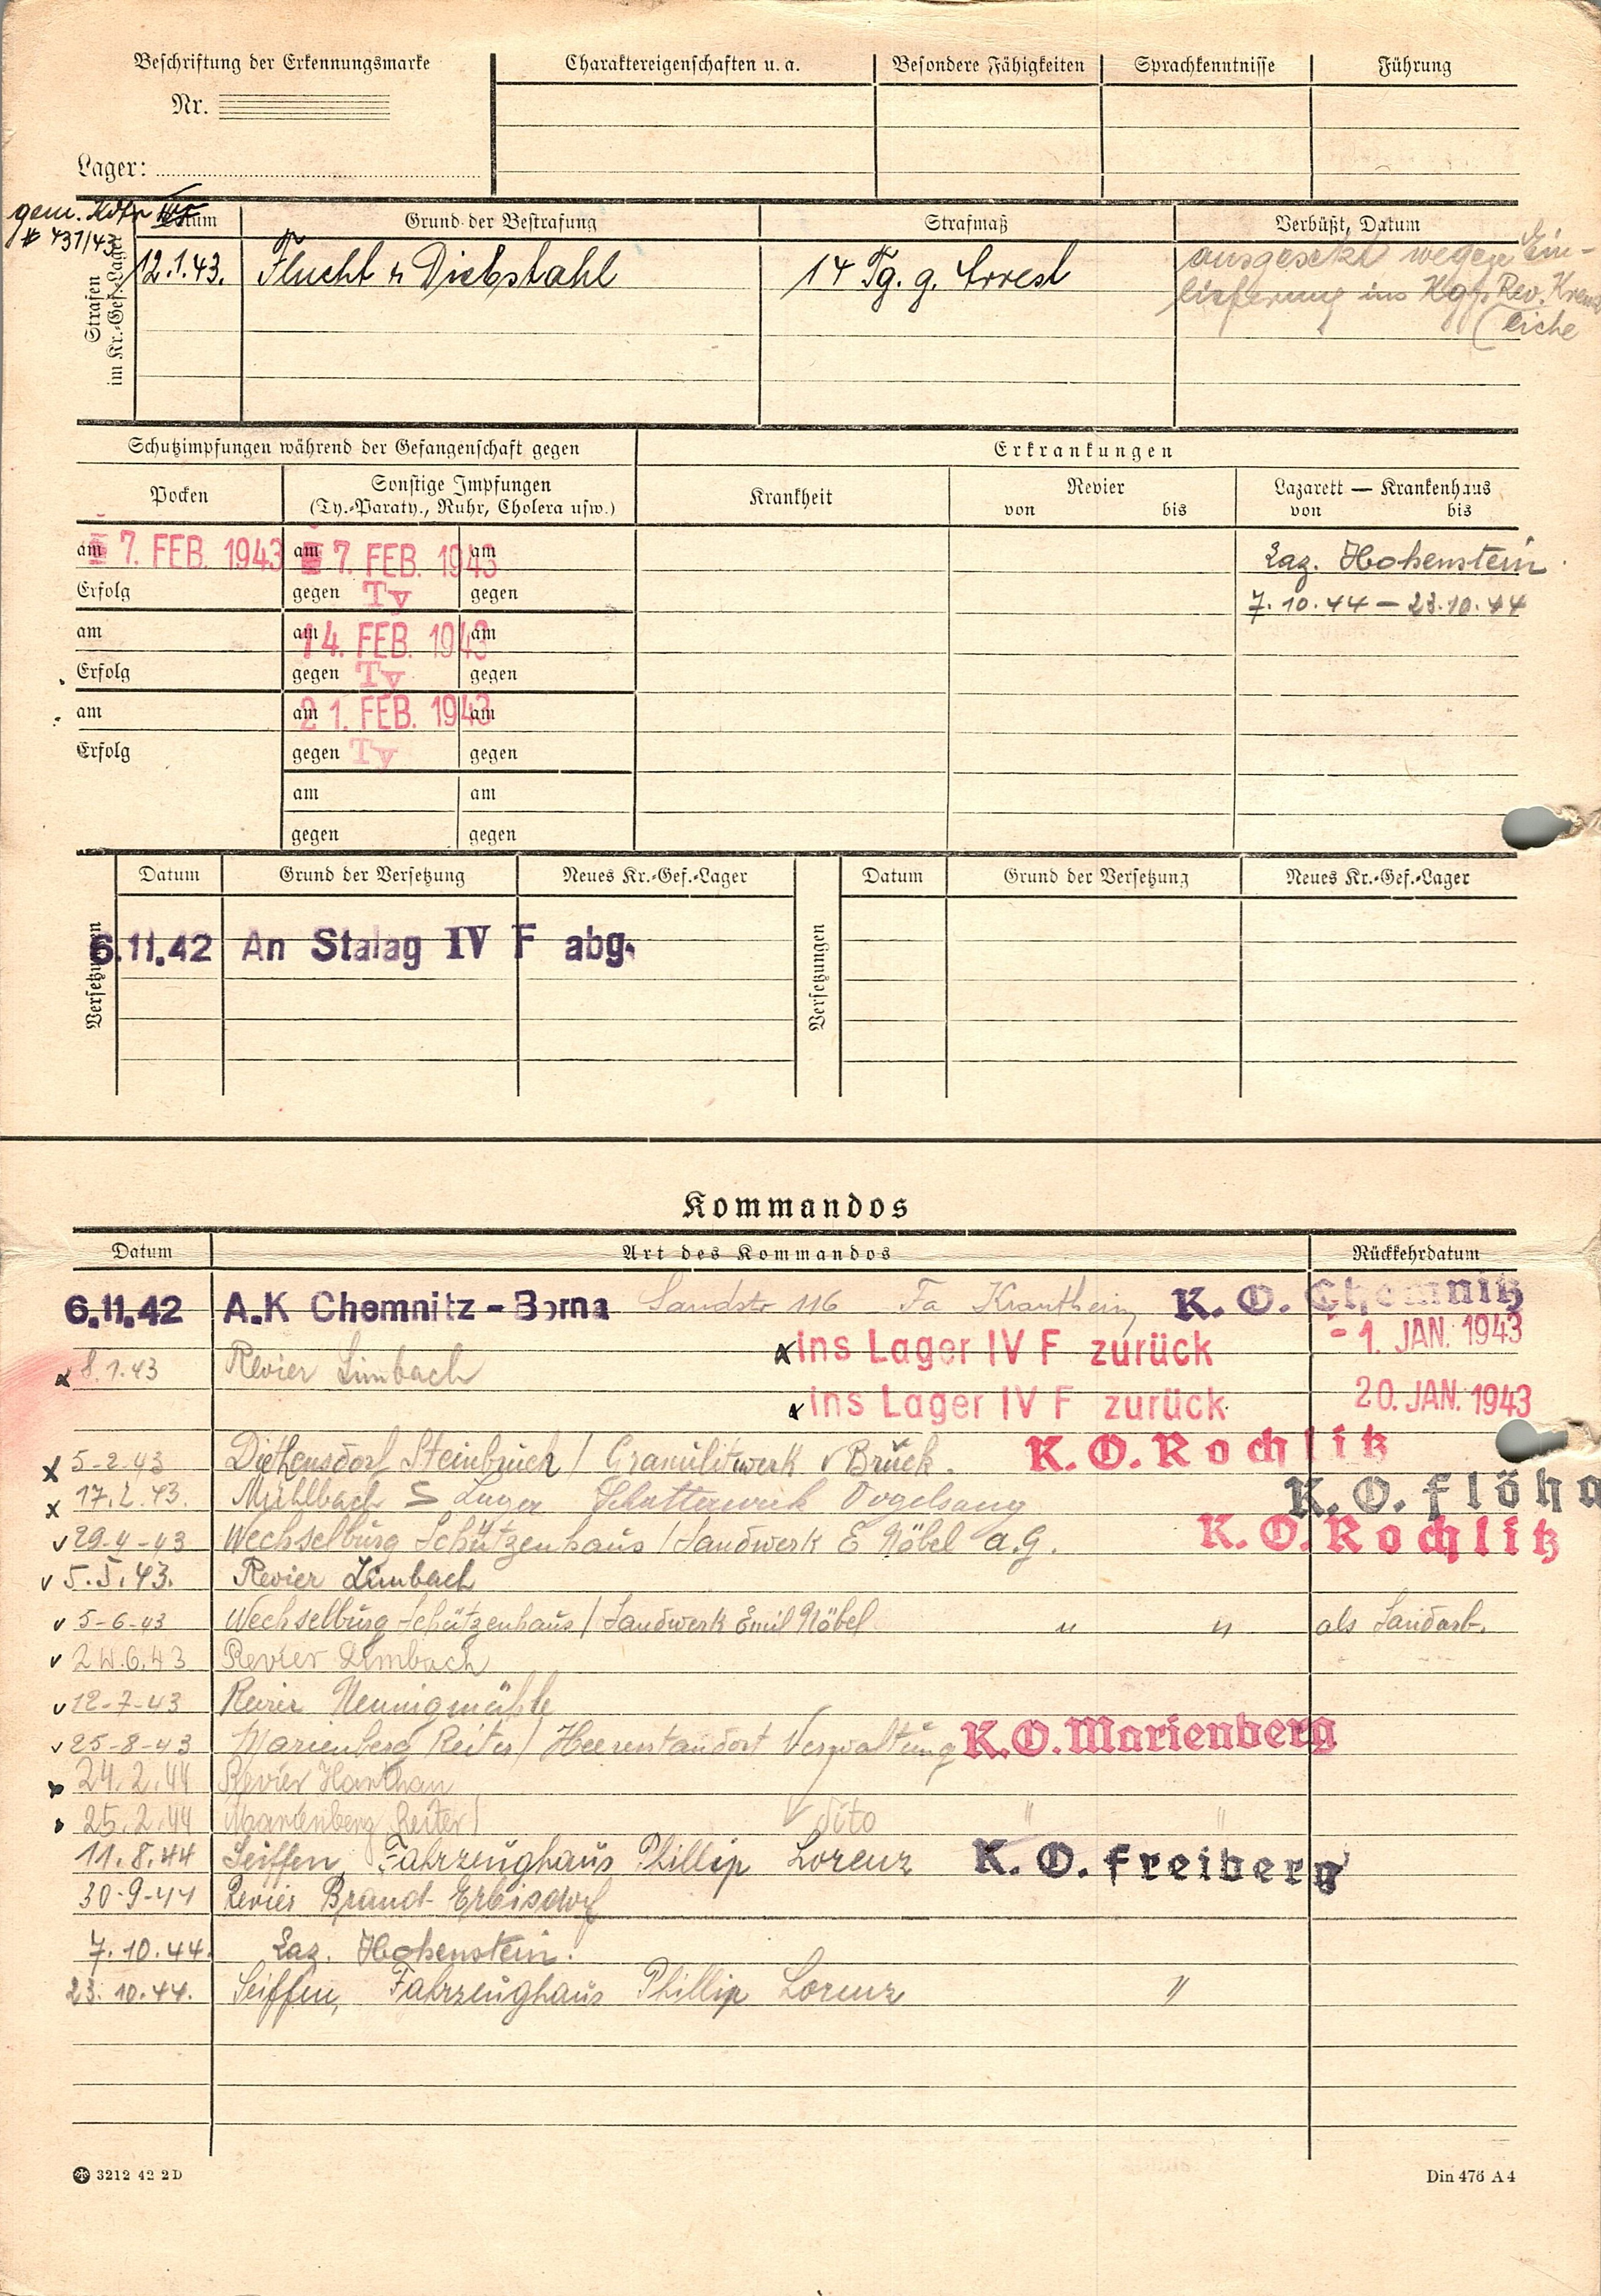 Beschriftung der Erkennungsmarke
Nr.
Lager:
Charaktereigenschaften u. a. Besondere Fähigkeiten Sprachkenntnisse Führung
gem. Kdtr
# 437/43
Strafen im Kr.-Gef.-Lager
Datum Grund der Bestrafung Strafmaß Verbüßt, Datum
12.1.43. Flucht u Diebstahl 14 Tg. g. Arrest ausgesetzt wegen Ein-
lieferung ins Kgf. Rev. Kreuz
(eiche
Schutzimpfungen während der Gefangenschaft gegen
Pocken Sonstige Impfungen
(Ty.-Paraty., Ruhr, Cholera usw.)
Erkrankungen
Krankheit Revier Lazarett — Krankenhaus
von bis von bis
am 7. FEB. 1943 am 7. FEB. 1943 am
Laz. Hohenstein
Erfolg gegen Ty gegen
7.10.44 – 23.10.44
am am 14. FEB. 1943 am
Erfolg gegen Ty gegen
am am 21. FEB. 1943 am
Erfolg gegen Ty gegen
am am
gegen gegen
Versetzungen Datum Grund der Versetzung Neues Kr.-Gef.-Lager Versetzungen Datum Grund der Versetzung Neues Kr.-Gef.-Lager
6.11.42 An Stalag IV F abg.
Kommandos
Datum Art des Kommandos Rückkehrdatum
6.11.42 A.K Chemnitz - Borna Sandstr 116 Fa Krautheim K. O. Chemnitz
ins Lager IV F zurück - 1. JAN. 1943
8.1.43 Revier Limbach
ins Lager IV F zurück 20. JAN. 1943
5-2-43 Diethensdorf Steinbruch / Granulitwerk v Brück. K. O. Rochlitz
17.2.43. Mühlbach S Lager Schotterwerk Vogelsang K. O. Flöha
29-4-43 Wechselburg Schützenhaus / Sandwerk E Nöbel a.G. K. O. Rochlitz
5.5.43. Revier Limbach
5-6-43 Wechselburg Schützenhaus / Sandwerk Emil Nöbel " " als Sandarb.
24.6.43 Revier Limbach
12-7-43 Revier Nennigmühle
25-8-43 Marienberg Reiter / Heeresstandort Verwaltung K. O. Marienberg
24.2.44 Revier Harthau
25.2.44 Marienberg Reiter / dito " "
11.8.44 Seiffen, Fahrzeughaus Phillip Lorenz K. O. Freiberg
30-9-44 Revier Brand-Erbisdorf
7.10.44. Laz. Hohenstein.
23.10.44. Seiffen, Fahrzeughaus Phillip Lorenz "
3212 42 2D Din 476 A4